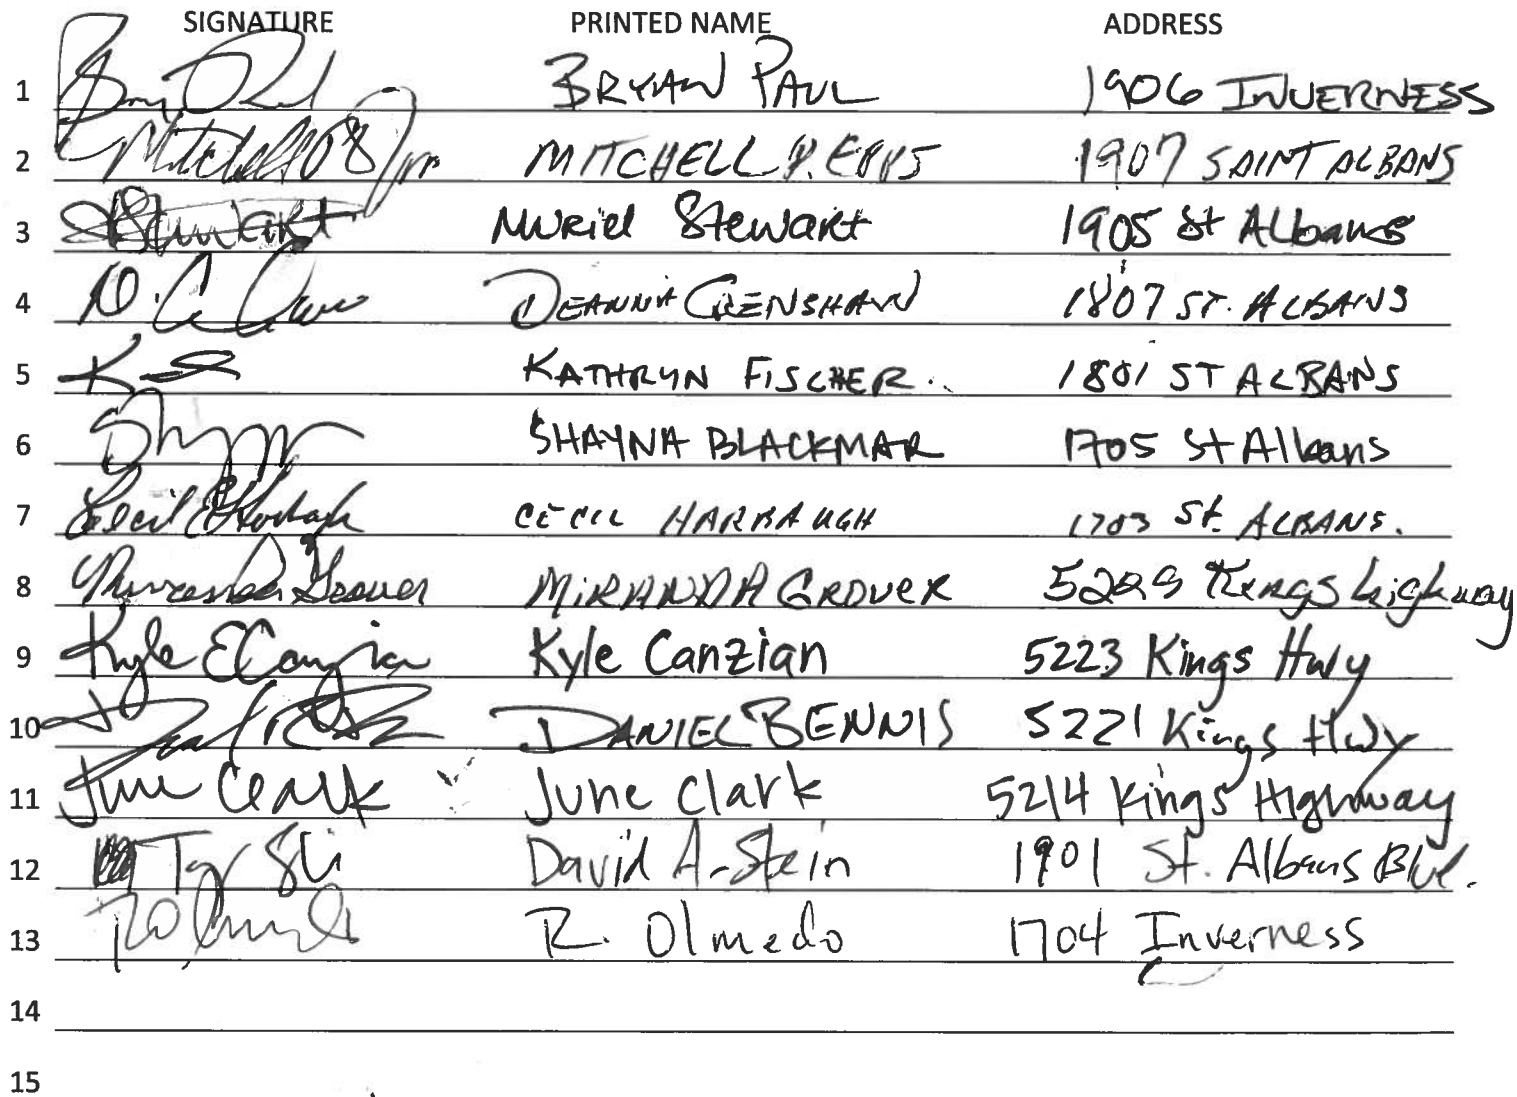 SIGNATURE PRINTED NAME ADDRESS
1 BRYAN PAUL 1906 INVERNESS
2 MITCHELL P. EPPS 1907 SAINT ALBANS
3 Stewart Muriel Stewart 1905 St Albans
4 DEANNA CRENSHAW 1807 ST. ALBANS
5 KATHRYN FISCHER 1801 ST ALBANS
6 SHAYNA BLACKMAR 1705 St Albans
7 Cecil Harbaugh CECIL HARBAUGH 1703 St. ALBANS.
8 Miranda Grover MIRANDA GROVER 5229 Kings highway
9 Kyle E Canzian Kyle Canzian 5223 Kings Hwy
10 DANIEL BENNIS 5221 Kings Hwy
11 June Clark June Clark 5214 Kings Highway
12 David A. Stein 1901 St. Albans Blvd.
13 R. Olmedo 1704 Inverness
14
15